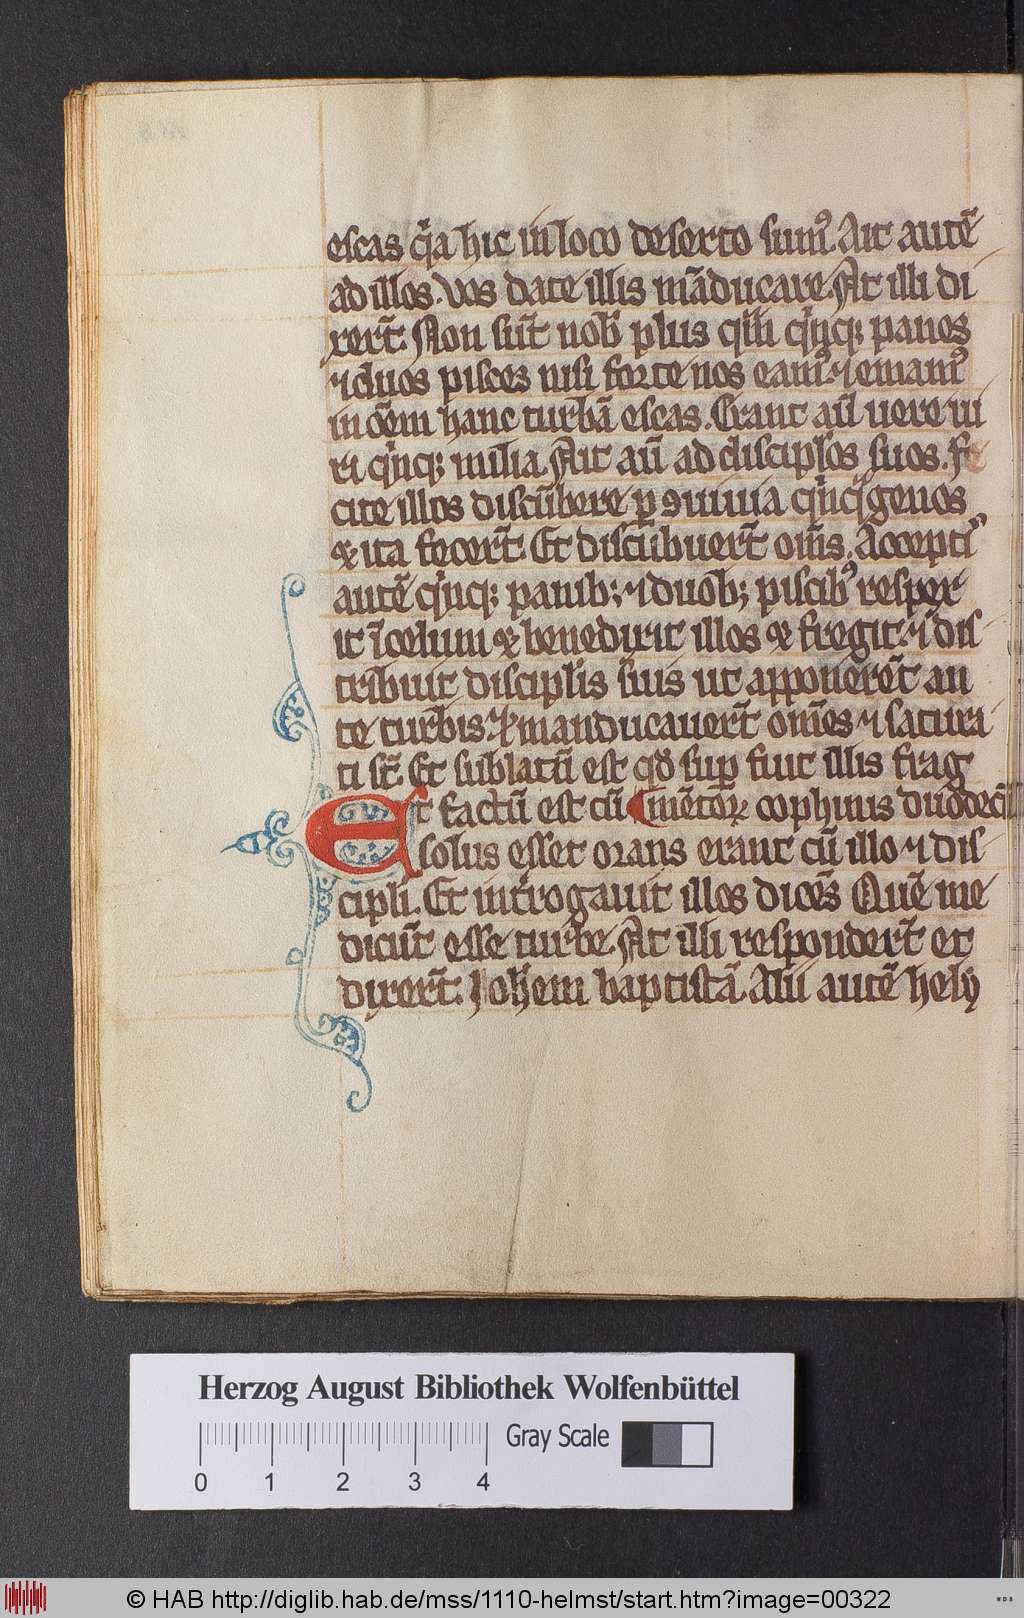 escas q̇a hic in loco deserto sumꝰ. Ait autē
ad illos. vos date illis māducare. At illi di
xert̄. Non sūt nob̄ plus q̄ꝫ q̇nqꝫ panes
⁊ duos pisces nisi forte nos eamꝰ ⁊ emamꝰ
in oēm hanc turbā escas. Erant aūt uere ui
ri q̇nqꝫ milia. Ait aūt ad discipl̄os suos. Fa
cite illos discūbere ꝑ ꝯuiuia q̇nq̇genos
⁊ ita fecert̄. Et discubuert̄ om̄s. Acceptiſ
autē q̇nqꝫ panibꝫ ⁊ duobꝫ piscibꝰ respex
it ī celum ⁊ benedixit illos ⁊ fregit ⁊ dis
tribuit discipl̄is suis ut apponerēt an
te turbis. Et manducauert̄ om̄es ⁊ satura
ti st̄. Et sublatū est qd̄ suꝑ fuit illis frag
Et factū est cū mētoꝝ cophinis duodecī
solus esset orans erant cū illo ⁊ dis
cipli. Et int̄rogauit illos dicēs Quē me
dicūt esse turbe. At illi respondert̄ et
dixert̄. Ioh̄em baptistā. Alii autē hely
Herzog August Bibliothek Wolfenbüttel
0 1 2 3 4 Gray Scale
© HAB http://diglib.hab.de/mss/1110-helmst/start.htm?image=00322